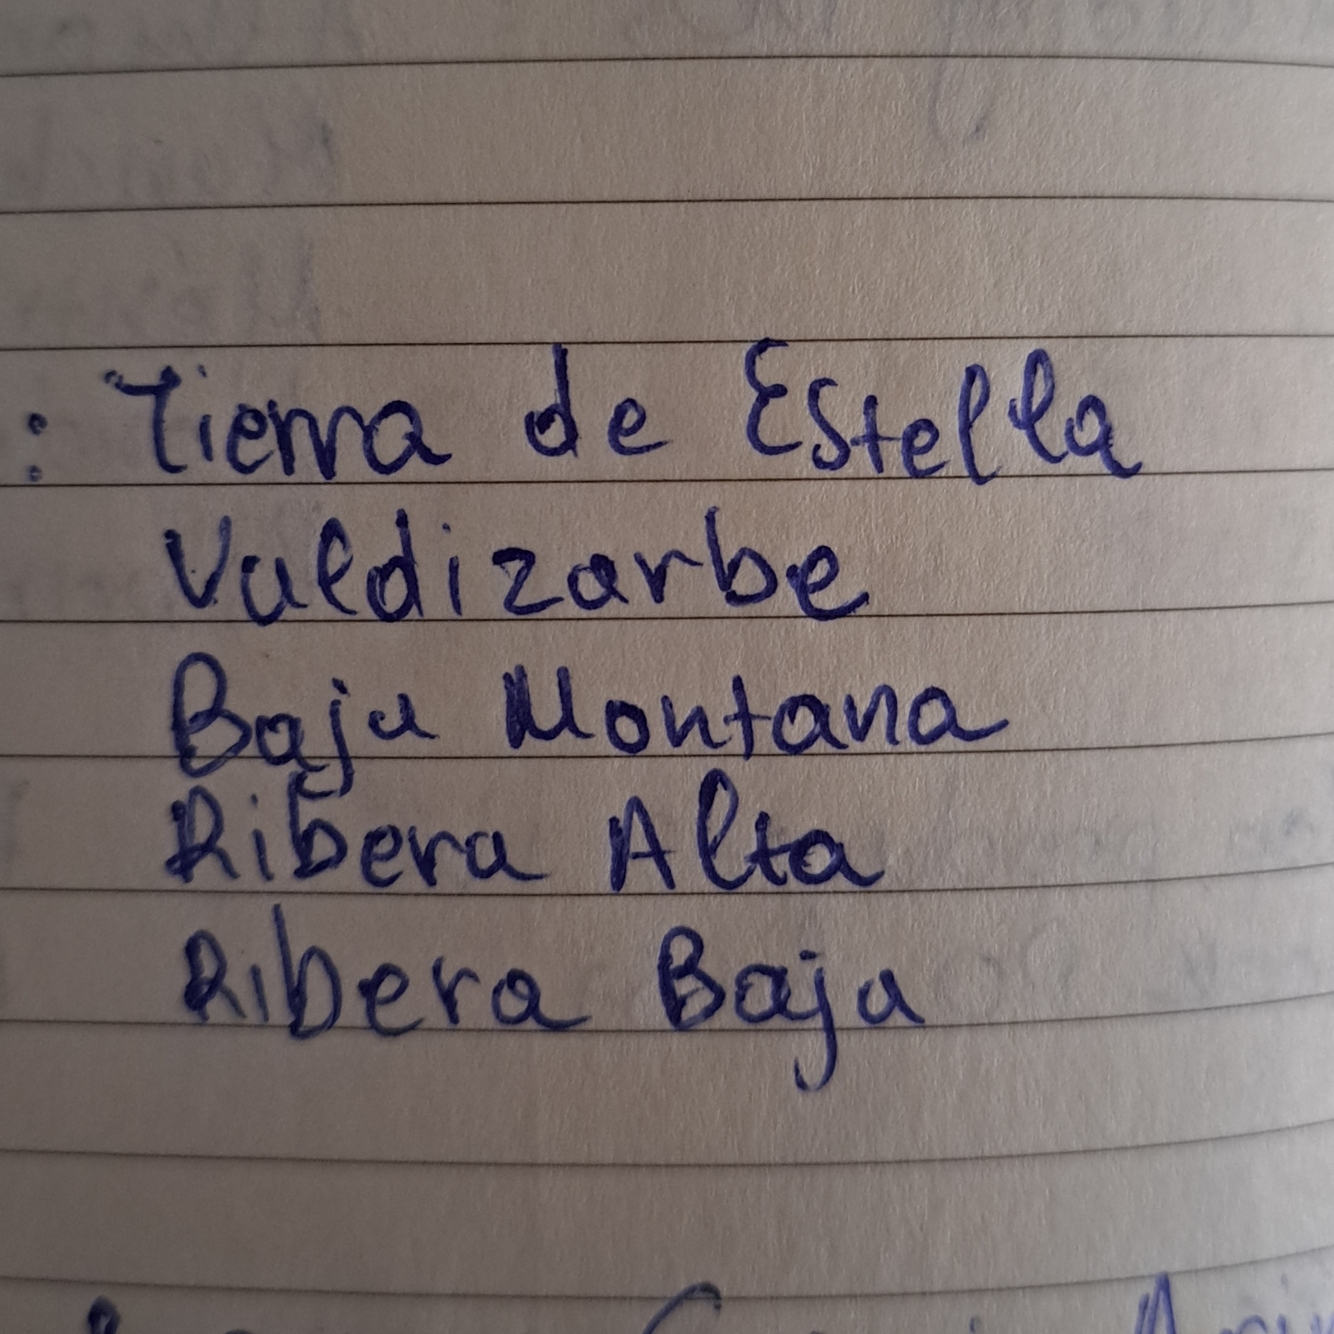 : Tierra de Estella
Valdizarbe
Baja Montana
Ribera Alta
Ribera Baja